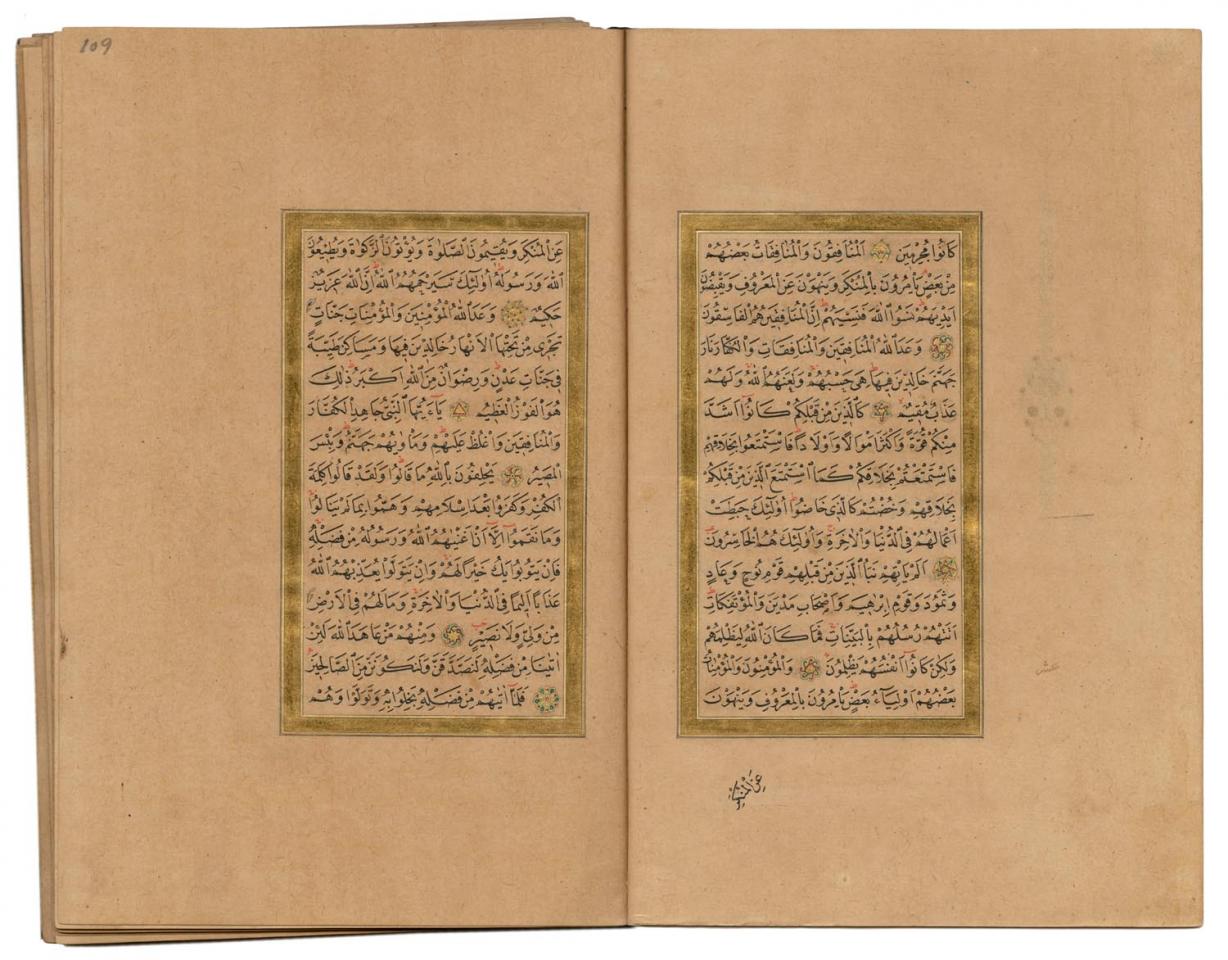 كَانُوا مُجْرِمِينَ اَلْمُنَافِقُونَ وَالْمُنَافِقَاتُ بَعْضُهُمْ
مِنْ بَعْضٍ يَأْمُرُونَ بِالْمُنْكَرِ وَيَنْهَوْنَ عَنِ الْمَعْرُوفِ وَيَقْبِضُونَ
اَيْدِيَهُمْ نَسُوا اللّٰهَ فَنَسِيَهُمْ اِنَّ الْمُنَافِقِينَ هُمُ الْفَاسِقُونَ
وَعَدَ اللّٰهُ الْمُنَافِقِينَ وَالْمُنَافِقَاتِ وَالْكُفَّارَ نَارَ
جَهَنَّمَ خَالِدِينَ فِيهَا هِىَ حَسْبُهُمْ وَلَعَنَهُمُ اللّٰهُ وَلَهُمْ
عَذَابٌ مُقِيمٌ كَالَّذِينَ مِنْ قَبْلِكُمْ كَانُوا اَشَدَّ
مِنْكُمْ قُوَّةً وَاَكْثَرَ اَمْوَالًا وَاَوْلَادًا فَاسْتَمْتَعُوا بِخَلَاقِهِمْ
فَاسْتَمْتَعْتُمْ بِخَلَاقِكُمْ كَمَا اسْتَمْتَعَ الَّذِينَ مِنْ قَبْلِكُمْ
بِخَلَاقِهِمْ وَخُضْتُمْ كَالَّذِى خَاضُوا اُولٰئِكَ حَبِطَتْ
اَعْمَالُهُمْ فِى الدُّنْيَا وَالْاٰخِرَةِ وَاُولٰئِكَ هُمُ الْخَاسِرُونَ
اَلَمْ يَأْتِهِمْ نَبَأُ الَّذِينَ مِنْ قَبْلِهِمْ قَوْمِ نُوحٍ وَعَادٍ
وَثَمُودَ وَقَوْمِ اِبْرٰهِيمَ وَاَصْحَابِ مَدْيَنَ وَالْمُؤْتَفِكَاتِ
اَتَتْهُمْ رُسُلُهُمْ بِالْبَيِّنَاتِ فَمَا كَانَ اللّٰهُ لِيَظْلِمَهُمْ
وَلٰكِنْ كَانُوا اَنْفُسَهُمْ يَظْلِمُونَ وَالْمُؤْمِنُونَ وَالْمُؤْمِنَاتُ
بَعْضُهُمْ اَوْلِيَاءُ بَعْضٍ يَأْمُرُونَ بِالْمَعْرُوفِ وَيَنْهَوْنَ
عشر
عَنِ الْمُنْكَرِ
109
عَنِ الْمُنْكَرِ وَيُقِيمُونَ الصَّلٰوةَ وَيُؤْتُونَ الزَّكٰوةَ وَيُطِيعُونَ
اللّٰهَ وَرَسُولَهُ اُولٰئِكَ سَيَرْحَمُهُمُ اللّٰهُ اِنَّ اللّٰهَ عَزِيزٌ
حَكِيمٌ وَعَدَ اللّٰهُ الْمُؤْمِنِينَ وَالْمُؤْمِنَاتِ جَنَّاتٍ
تَجْرِى مِنْ تَحْتِهَا الْاَنْهَارُ خَالِدِينَ فِيهَا وَمَسَاكِنَ طَيِّبَةً
فِى جَنَّاتِ عَدْنٍ وَرِضْوَانٌ مِنَ اللّٰهِ اَكْبَرُ ذٰلِكَ
هُوَ الْفَوْزُ الْعَظِيمُ يَا اَيُّهَا النَّبِىُّ جَاهِدِ الْكُفَّارَ
وَالْمُنَافِقِينَ وَاغْلُظْ عَلَيْهِمْ وَمَأْوٰيهُمْ جَهَنَّمُ وَبِئْسَ
الْمَصِيرُ يَحْلِفُونَ بِاللّٰهِ مَا قَالُوا وَلَقَدْ قَالُوا كَلِمَةَ
الْكُفْرِ وَكَفَرُوا بَعْدَ اِسْلَامِهِمْ وَهَمُّوا بِمَا لَمْ يَنَالُوا
وَمَا نَقَمُوا اِلَّا اَنْ اَغْنٰيهُمُ اللّٰهُ وَرَسُولُهُ مِنْ فَضْلِهِ
فَاِنْ يَتُوبُوا يَكُ خَيْرًا لَهُمْ وَاِنْ يَتَوَلَّوْا يُعَذِّبْهُمُ اللّٰهُ
عَذَابًا اَلِيمًا فِى الدُّنْيَا وَالْاٰخِرَةِ وَمَا لَهُمْ فِى الْاَرْضِ
مِنْ وَلِىٍّ وَلَا نَصِيرٍ وَمِنْهُمْ مَنْ عَاهَدَ اللّٰهَ لَئِنْ
اٰتٰينَا مِنْ فَضْلِهِ لَنَصَّدَّقَنَّ وَلَنَكُونَنَّ مِنَ الصَّالِحِينَ
فَلَمَّا اٰتٰيهُمْ مِنْ فَضْلِهِ بَخِلُوا بِهِ وَتَوَلَّوْا وَهُمْ